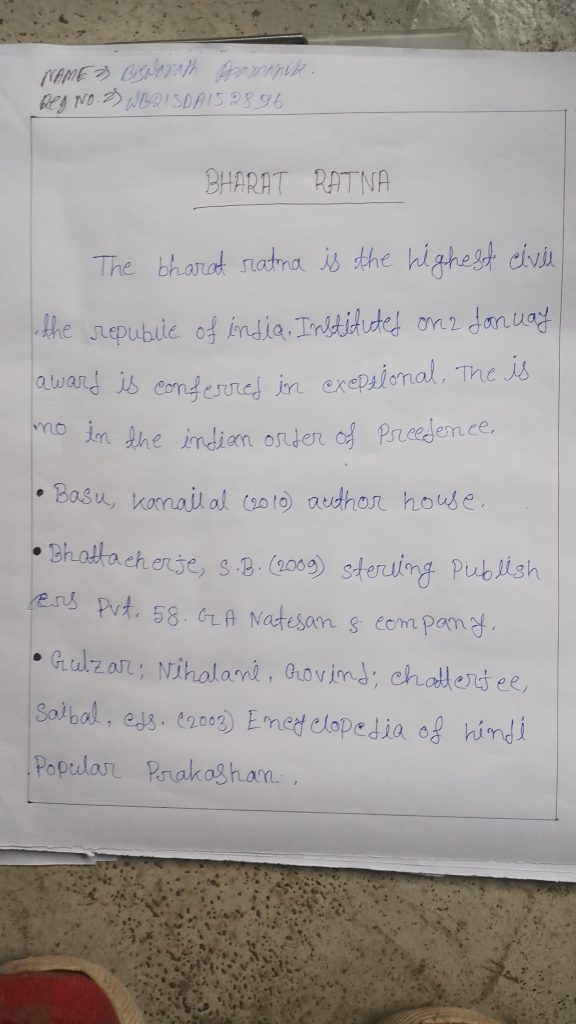 NAME => Biswanath Pramanik.
Reg No. => WB21SDA152896
BHARAT RATNA
The bharat ratna is the highest civil
the republic of india. Instituted on 2 January
award is conferred in exeptional. The is
no in the indian order of Preedence.
• Basu, kanailal (2010) author house.
• Bhattacherje, S.B. (2009) sterling Publish
ers Pvt. 58. G A Natesan & company.
• Gulzar; Nihalani, Govind; chatterjee,
Saibal, eds. (2003) Encyclopedia of hindi
Popular Prakashan.